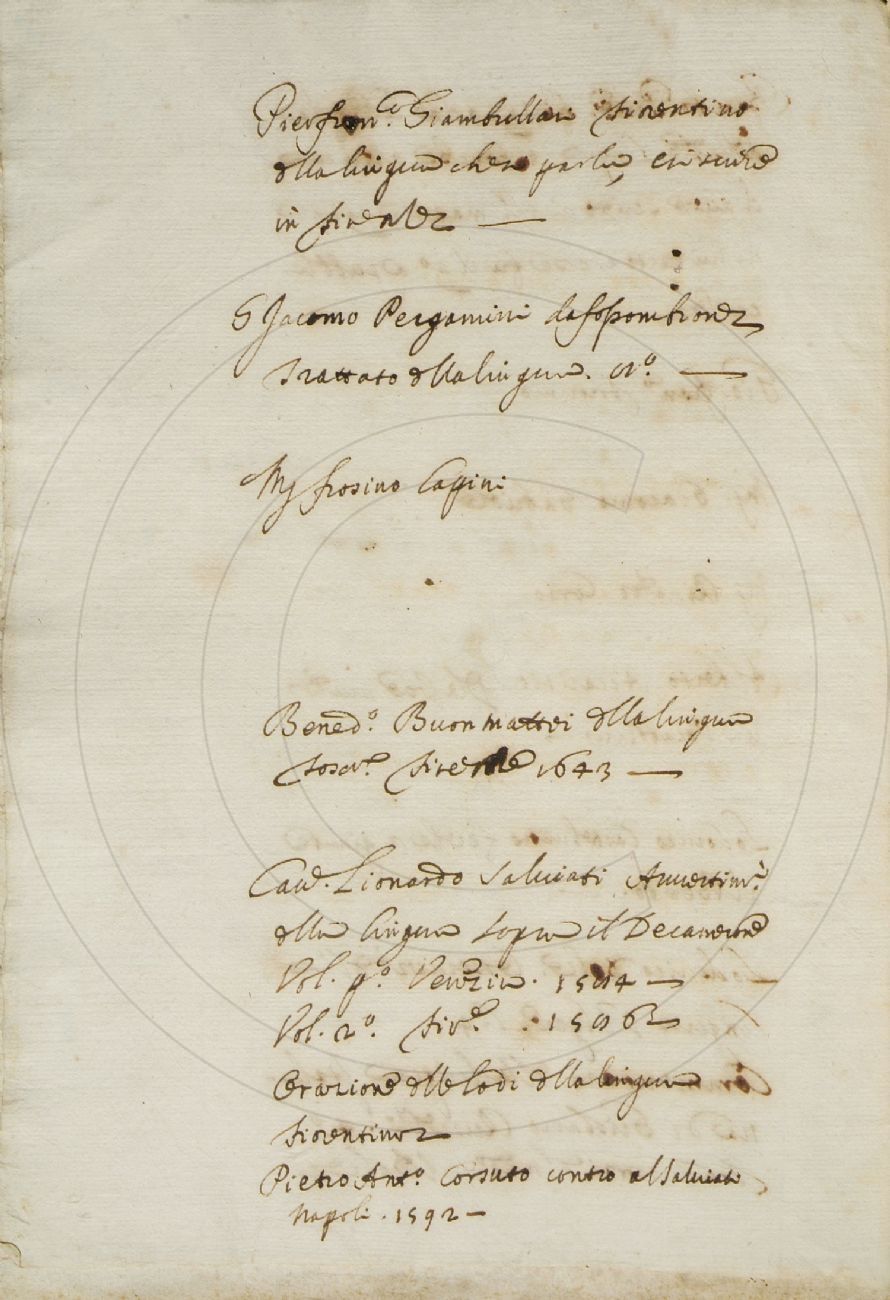 Pierfran.co Giambullari fiorentino
della lingua che si parla, e si scrive
in firenze —
S Jacomo Pergamini da fossombrone
Trattato della lingua.
Mg frosino Lapini
Bened.o Buonmattei della lingua
tosca. firenze 1643 —
Caval. Lionardo Salviati Avvertim.ti
della lingua sopra il Decamerone
Vol. p.o Venezia. 1584 —
Vol. 2.o fir.e . 1586
Orazione delle lodi della lingua
fiorentina
Pietro Ant.o Corsuto contro al Salviati
Napoli . 1592 —